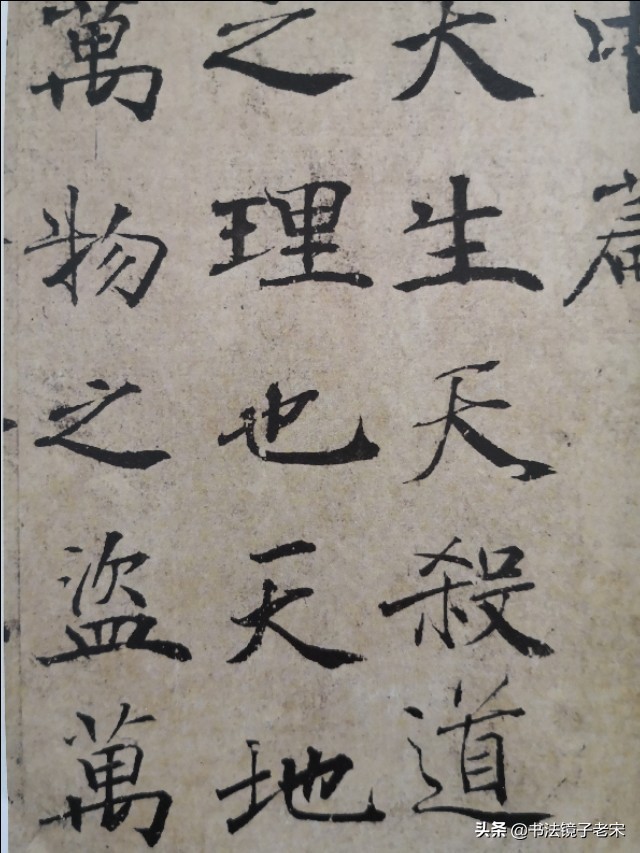 中篇
天生天殺道
之理也天地
萬物之盜萬
头条 @书法镜子老宋